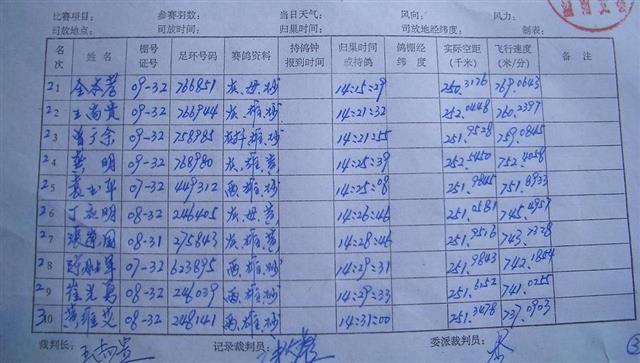 比赛项目: 参赛羽数: 当日天气: 风向: 风力:
司放地点: 司放时间: 归巢时间: 司放地经纬度: 制表:
名次 姓名 棚号证号 足环号码 赛鸽资料 持鸽钟报到时间 归巢时间或持鸽 鸽棚经纬度 实际空距(千米) 飞行速度(米/分) 备注
21 09-32 766851 灰.母.砂 14:15:29 250.3176 769.0643
22 王尚贵 09-32 766944 灰.雄.砂 14:21:32 252.0448 760.2397
23 09-32 758985 雄.砂 14:21:55 251.9528 759.0845
24 龚明 09-32 768980 灰.雄.黄 14:25:39 252.5450 752.4058
25 07-32 449312 雨.雄.砂 14:25:08 251.9845 751.8933
26 08-32 246405 灰.母.黄 14:26:46 251.0581 745.4957
27 08-31 275843 灰.雄.黄 14:28:46 251.9516 743.7328
28 07-32 623895 雨.雄.砂 14:29:31 251.9843 742.1854
29 崔光 08-32 248039 雨.雄.砂 14:29:33 251.6152 741.0255
30 08-32 248141 雨.雄.砂 14:31:00 251.3478 737.0903
裁判长: 王尚贵 记录裁判员: 委派裁判员: